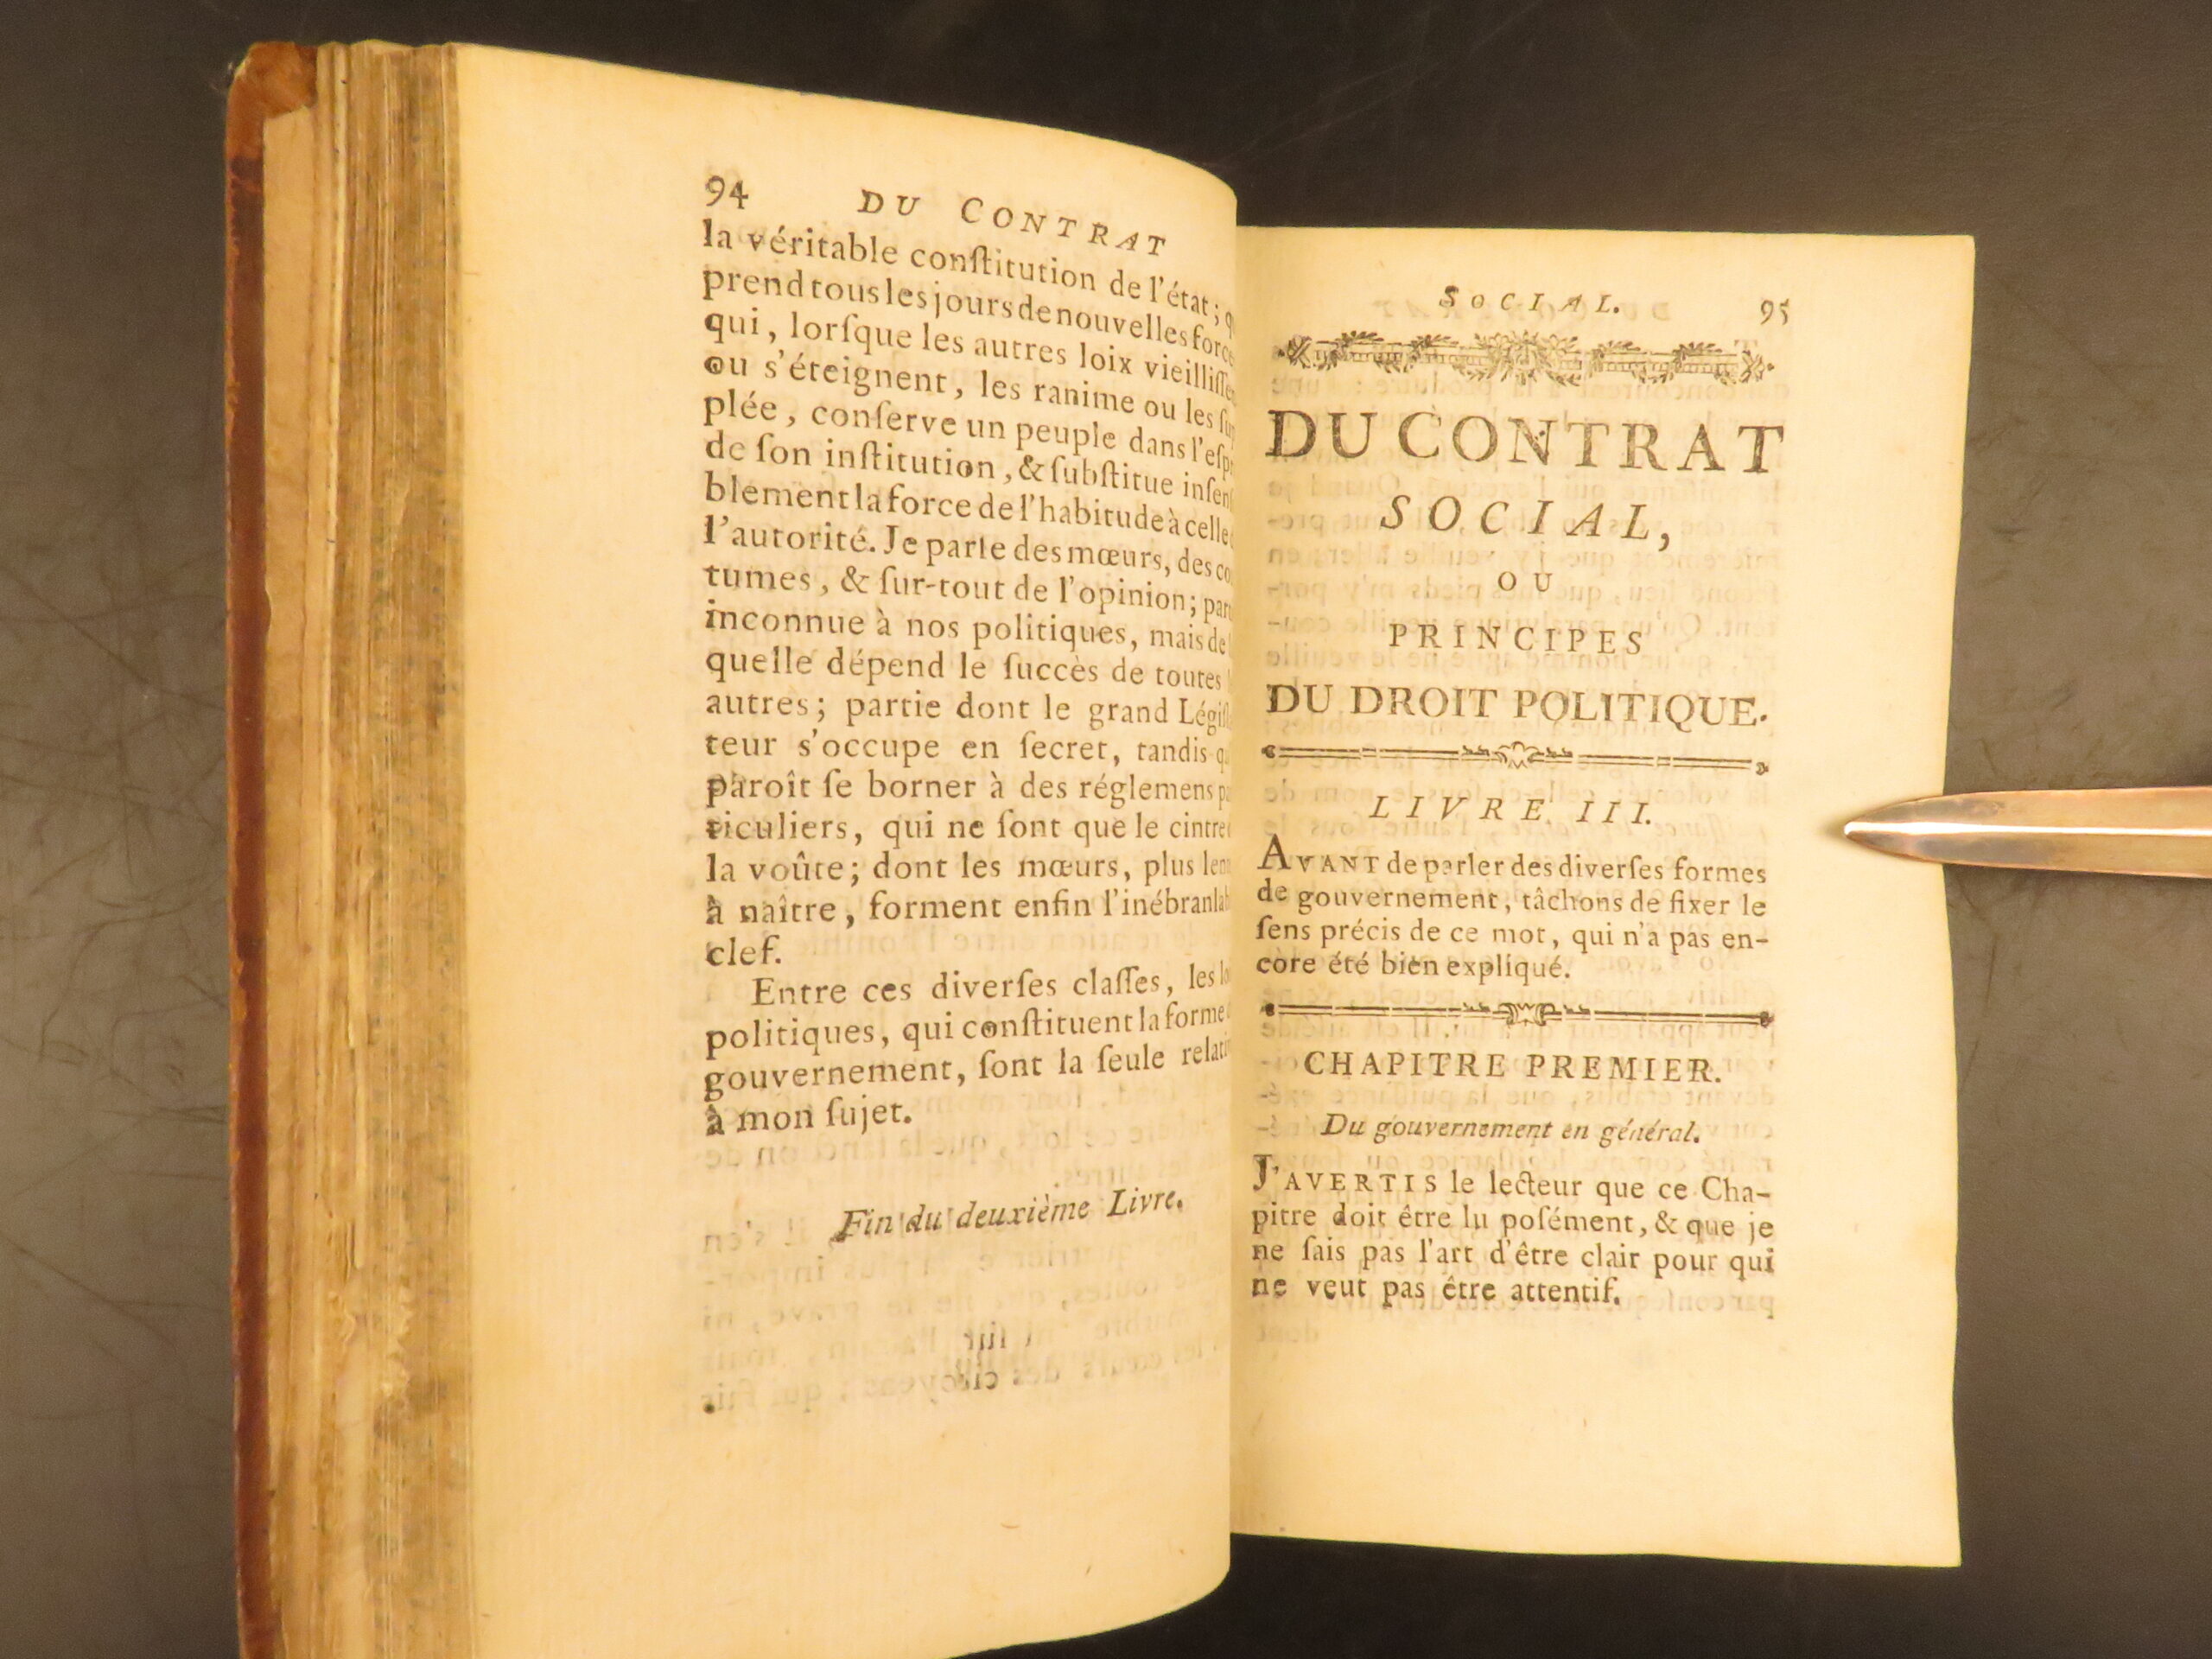 94 DU CONTRAT
la véritable conſtitution de l'état;
prend tous les jours de nouvelles force
qui, lorſque les autres loix vieilliſſe
ou s'éteignent, les ranime ou les ſu
plée, conſerve un peuple dans l'eſp
de ſon inſtitution, & ſubſtitue inſen
blement la force de l'habitude à celle
l'autorité. Je parle des mœurs, des co
tumes, & ſur-tout de l'opinion; par
inconnue à nos politiques, mais de
quelle dépend le ſuccès de toutes
autres; partie dont le grand Légiſ
teur s'occupe en ſecret, tandis q
paroît ſe borner à des réglemens p
ticuliers, qui ne ſont que le cintre
la voûte; dont les mœurs, plus len
à naître, forment enfin l'inébranla
clef.
Entre ces diverſes claſſes, les lo
politiques, qui conſtituent la forme
gouvernement, ſont la ſeule relati
à mon ſujet.
Fin du deuxième Livre.
SOCIAL. 95
DU CONTRAT
SOCIAL,
OU
PRINCIPES
DU DROIT POLITIQUE.
LIVRE III.
AVANT de parler des diverſes formes
de gouvernement, tâchons de fixer le
ſens précis de ce mot, qui n'a pas en-
core été bien expliqué.
CHAPITRE PREMIER.
Du gouvernement en général.
J'AVERTIS le lecteur que ce Cha-
pitre doit être lu poſément, & que je
ne ſais pas l'art d'être clair pour qui
ne veut pas être attentif.